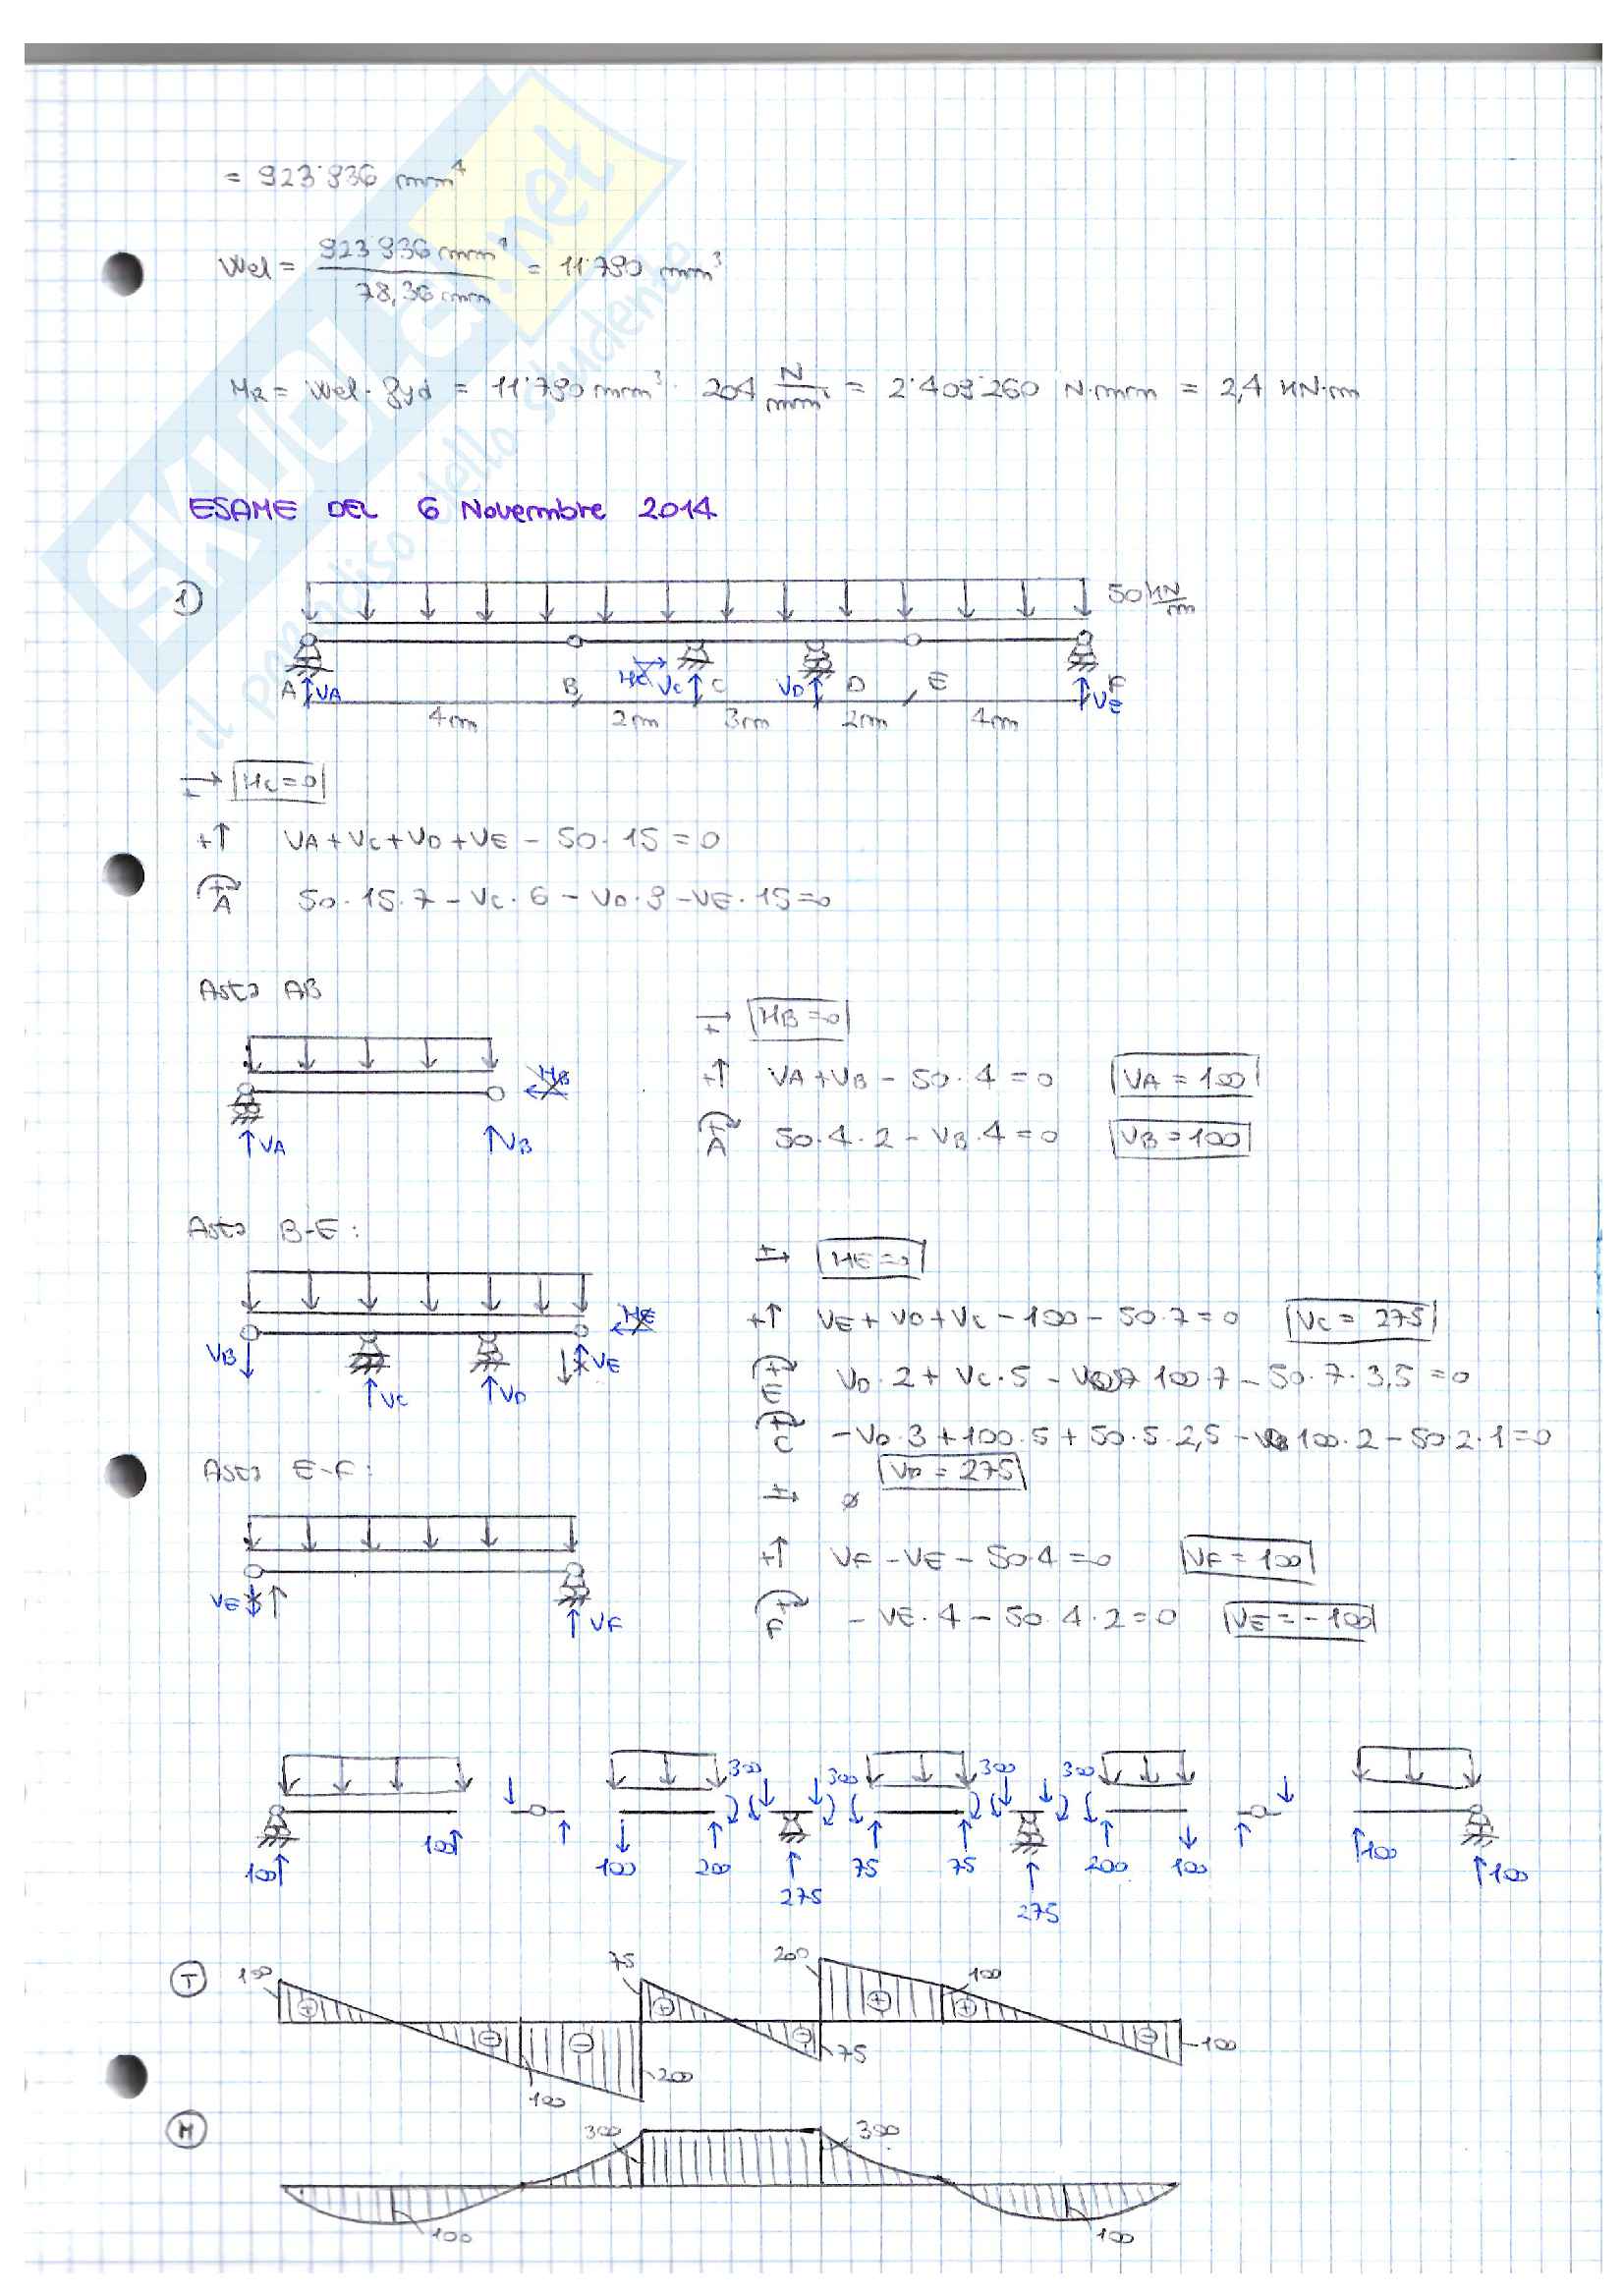 = 923'936 mm⁴
Wel = 923'936 mm⁴ / 78,36 mm = 11'790 mm³
MR = Wel · fyd = 11'790 mm³ · 204 N/mm² = 2'409'260 N·mm = 2,4 kN·m
ESAME DEL 6 Novembre 2014
1)
50 kN/m
A VA B HC VC C VD D E F VE
4m 2m 3m 2m 4m
HC = 0
+↑ VA + VC + VD + VE - 50 · 15 = 0
A 50 · 15 · 7 - VC · 6 - VD · 9 - VE · 15 = 0
Asta AB
HB = 0
HB
+↑ VA + VB - 50 · 4 = 0 VA = 100
VA VB
A 50 · 4 · 2 - VB · 4 = 0 VB = 100
Asta B-E:
HE = 0
HE
+↑ VE + VD + VC - 100 - 50 · 7 = 0 VC = 275
VB VC VD VE
E VD · 2 + VC · 5 - 100 · 7 - 50 · 7 · 3,5 = 0
C - VD · 3 + 100 · 5 + 50 · 5 · 2,5 - 100 · 2 - 50 · 2 · 1 = 0
VD = 275
Asta E-F:
+→ ø
+↑ VF - VE - 50 · 4 = 0 VF = 100
VE VF
F - VE · 4 - 50 · 4 · 2 = 0 VE = - 100
300 300 300 300
100 100 100 200 275 75 75 275 200 100 100 100
T 100 + - 100 - 200 75 + - 75 200 + 100 + - 100
M 300 300
100 100
SKUOLA.net
il paradiso dello studente